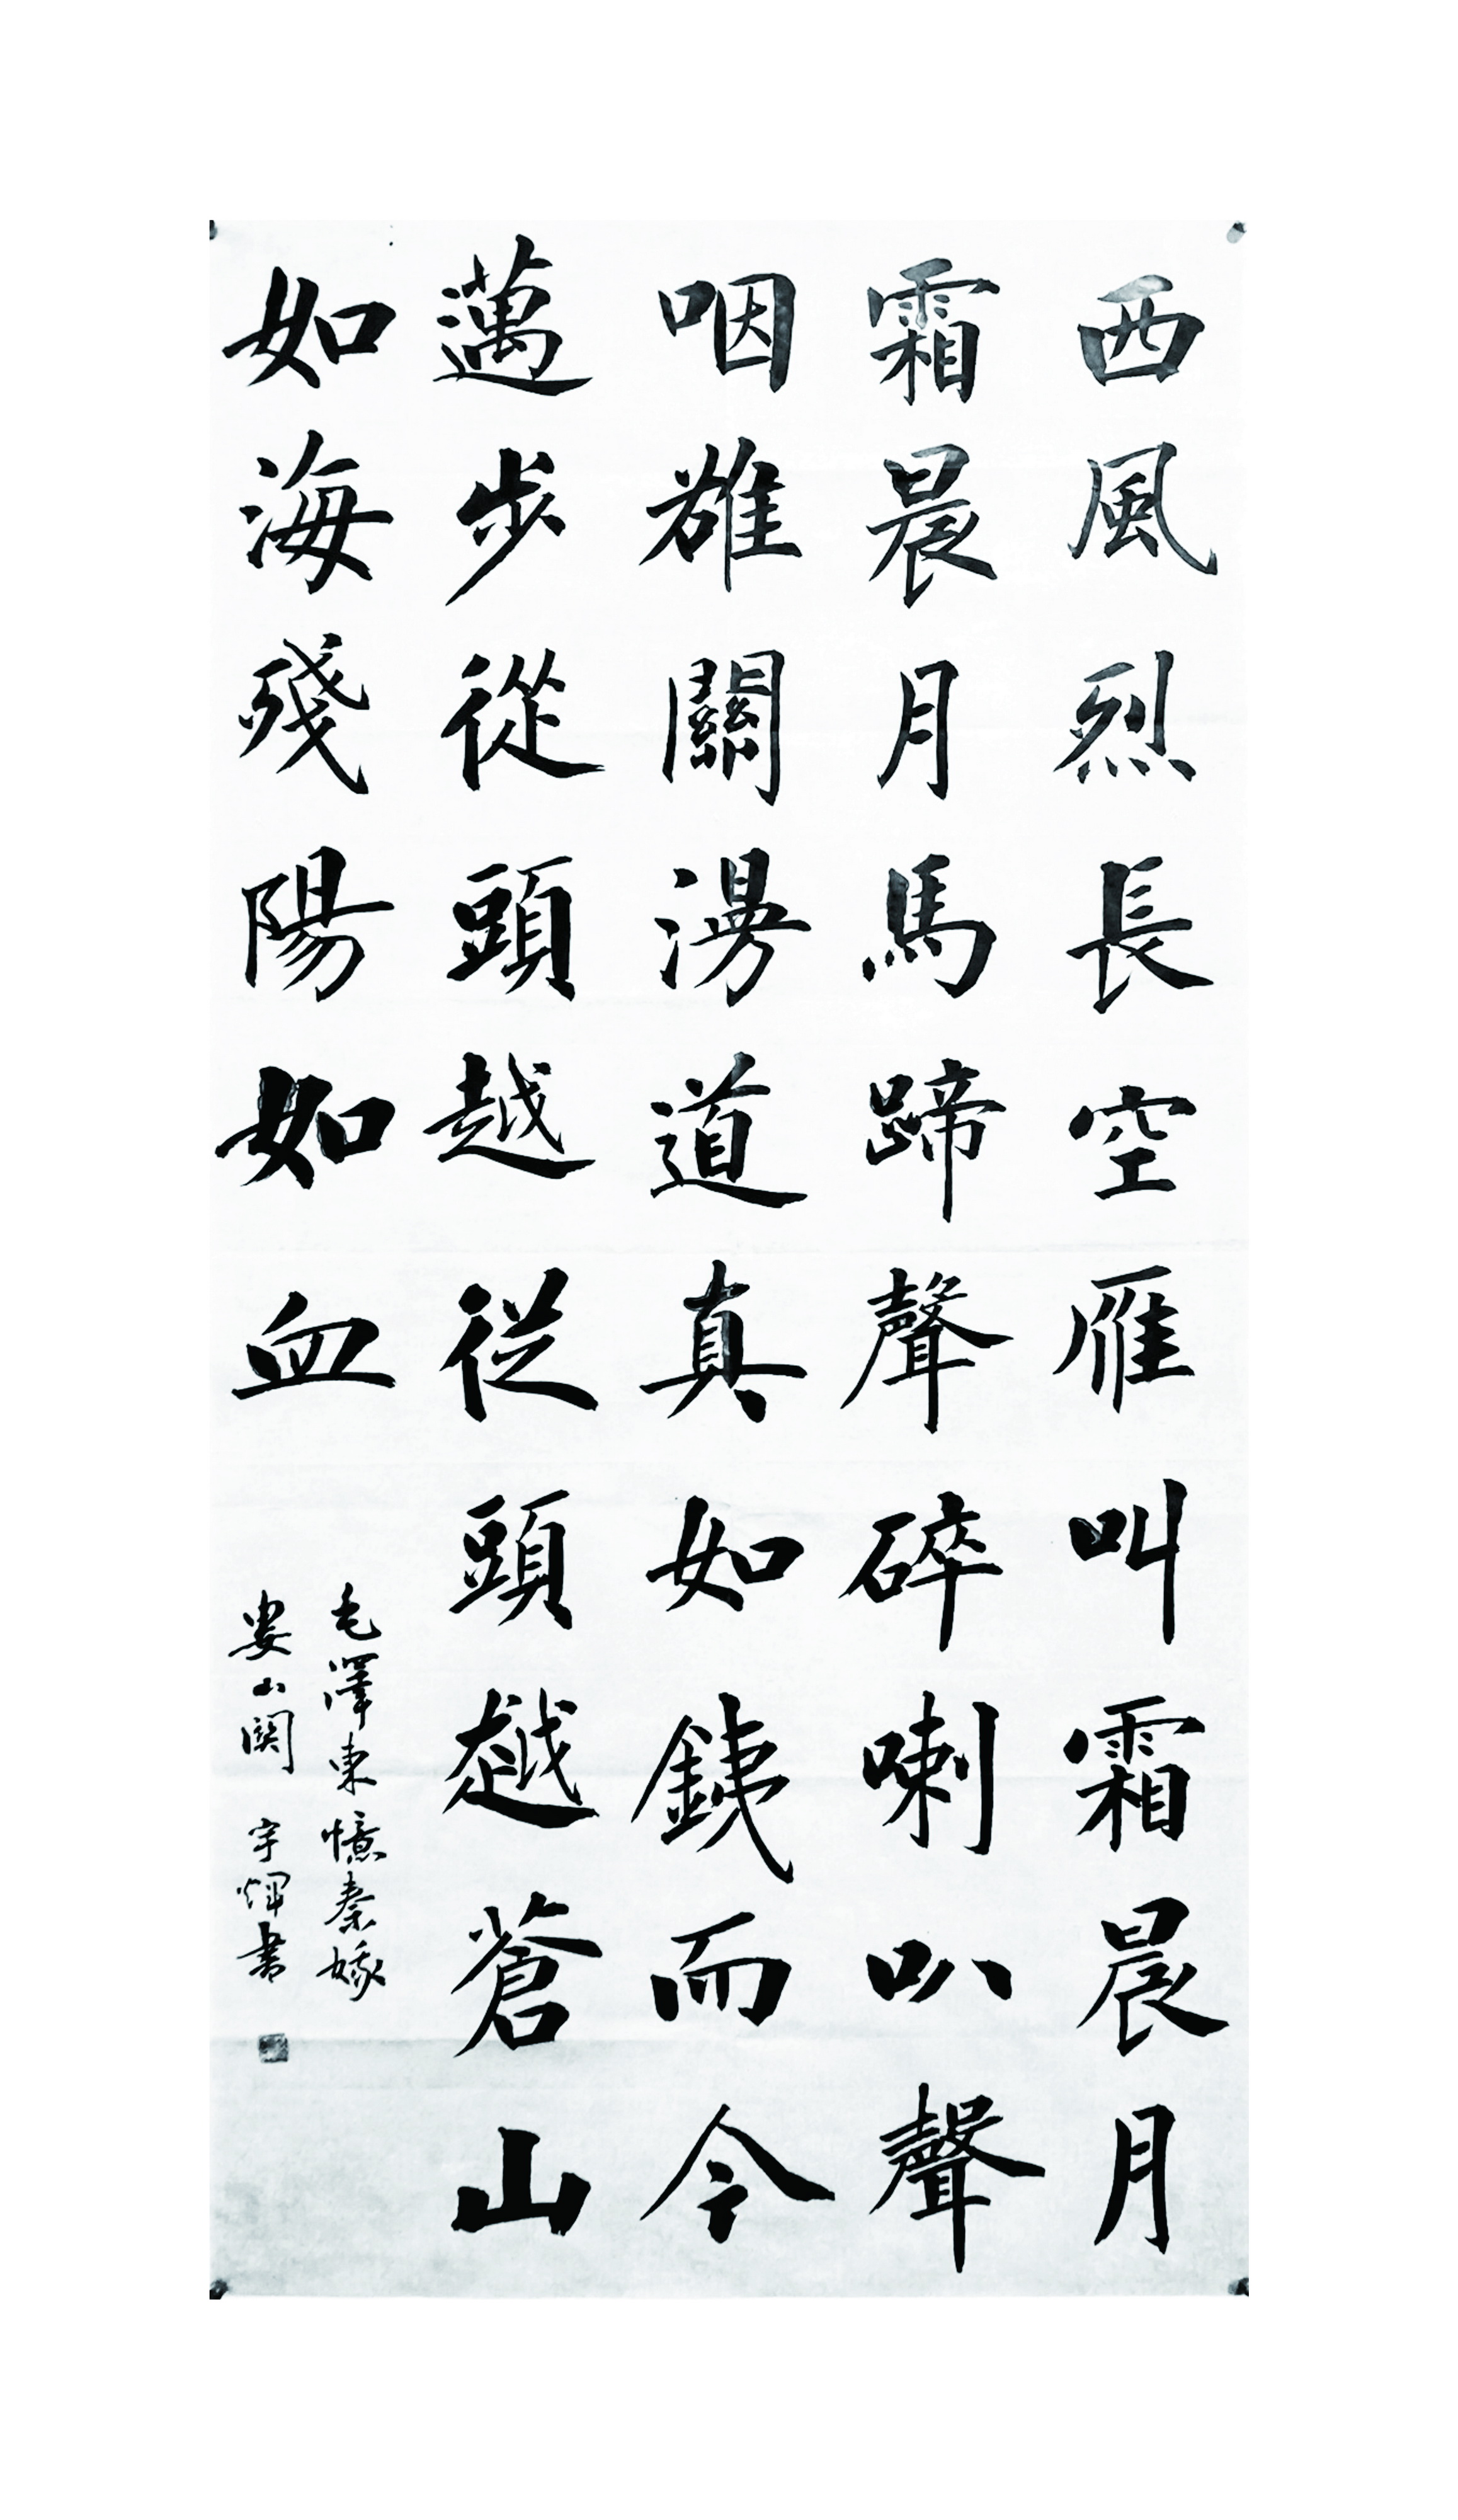 西風烈長空雁叫霜晨月
霜晨月馬蹄聲碎喇叭聲
咽雄關漫道真如鐵而今
邁步從頭越從頭越蒼山
如海殘陽如血
毛澤東憶秦娥
婁山関 宇煇書